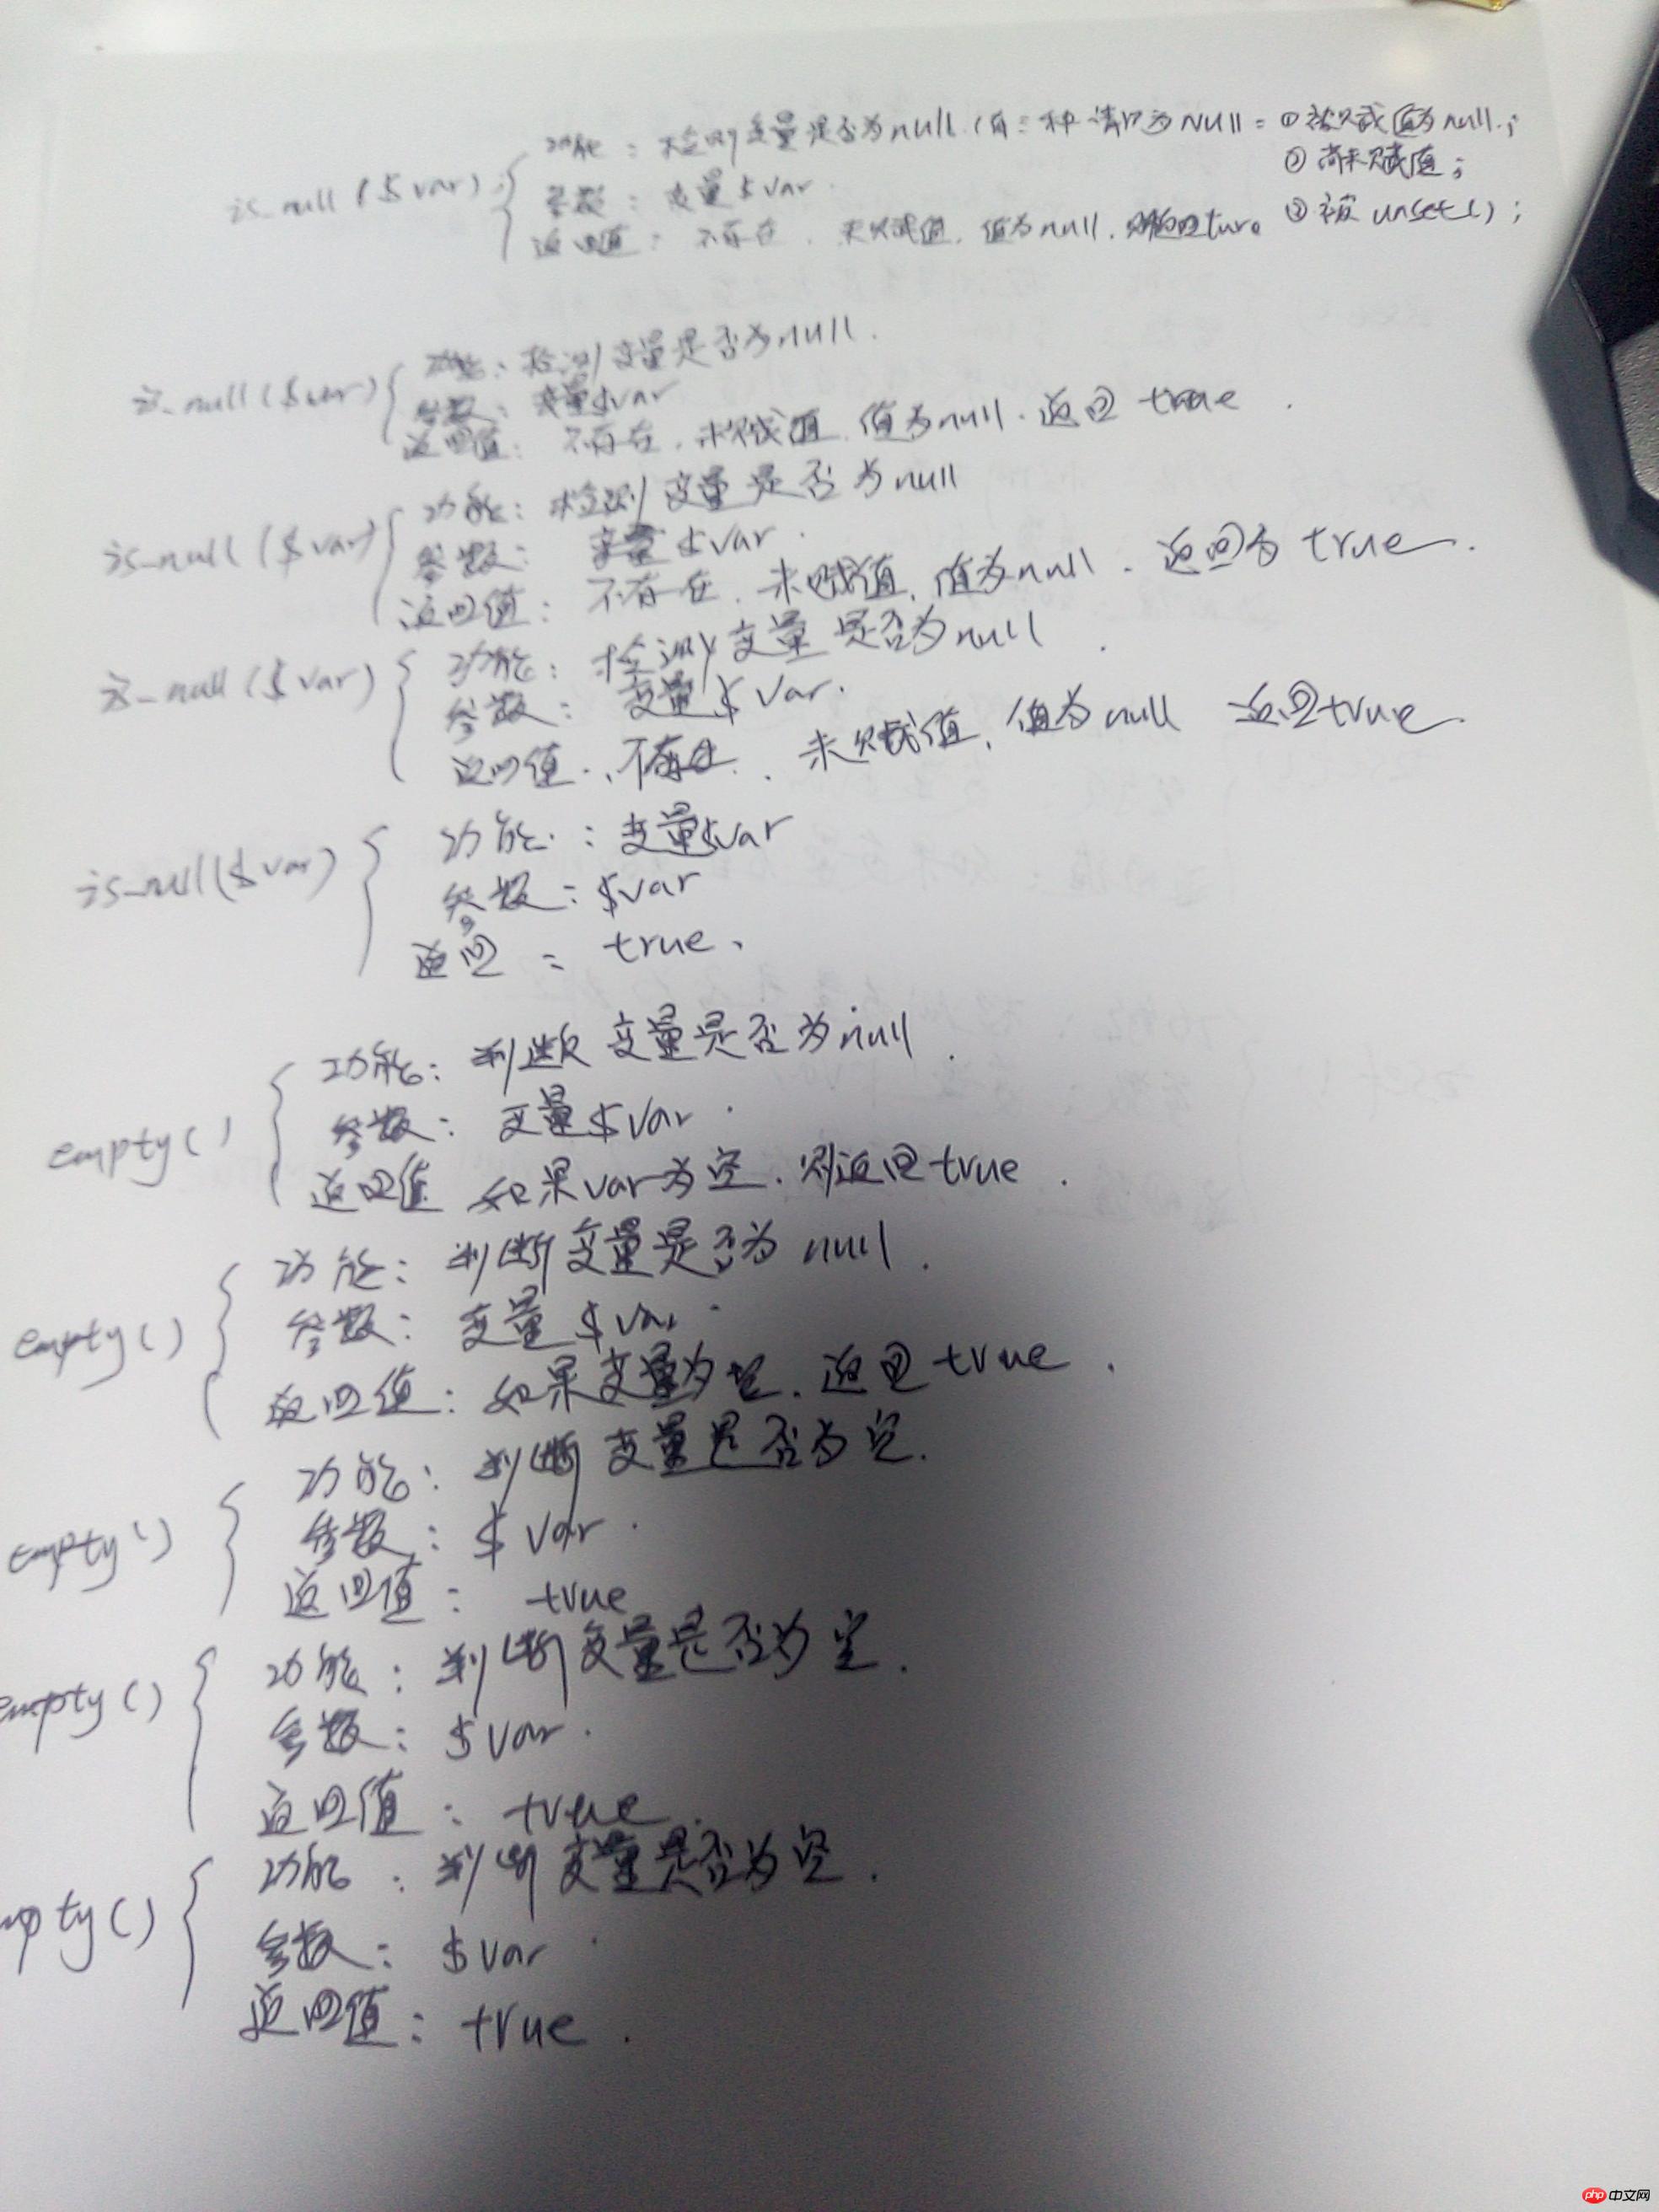 功能：检测变量是否为null.（有三种情况为NULL：①被赋值为null.；
is_null($var)
②尚未赋值；
参数：变量$var.
③被unset()；
返回值：不存在．未赋值．值为null．则返回ture
功能：检测变量是否为null.
is_null($var)
参数：变量$var
返回值：不存在．未赋值．值为null．返回true．
功能：检测变量是否为null
is_null($var)
参数：变量$var.
返回值：不存在．未赋值．值为null．返回为true．
功能：检测变量是否为null．
is_null($var)
参数：变量$var.
返回值：不存在．未赋值．值为null 返回true．
功能：变量$var
is_null($var)
参数：$var
返回：true．
功能：判断变量是否为null．
empty()
参数：变量$var．
返回值 如果var为空．则返回true．
功能：判断变量是否为null．
empty()
参数：变量$var．
返回值：如果变量为空．返回true．
功能：判断变量是否为空．
empty()
参数：$var．
返回值：true
功能：判断变量是否为空．
empty()
参数：$var．
返回值：true．
功能：判断变量是否为空．
mpty()
参数：$var．
返回值：true．
php中文网